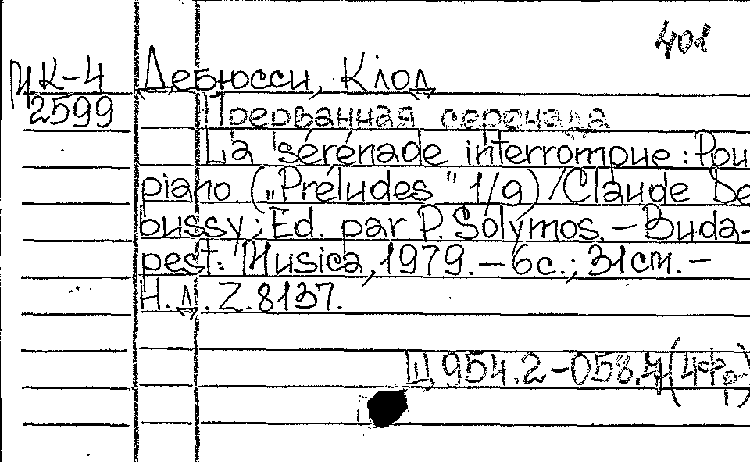 401
МК-4 Дебюсси, Клод
2599 Прерванная серенада
La sérénade interrompue: Pou
piano („Preludes" 1/9) / Claude De
bussy; Ed. par P. Solymos. - Buda-
pest: Musica, 1979. - 6с.; 31см. -
Н.д. Z. 8137.
Ц 954.2-058.4(4Фр)